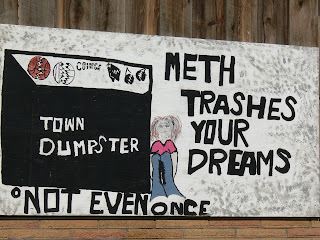 METH
TRASHES
YOUR
DREAMS
TOWN
DUMPSTER
NOT EVEN ONCE